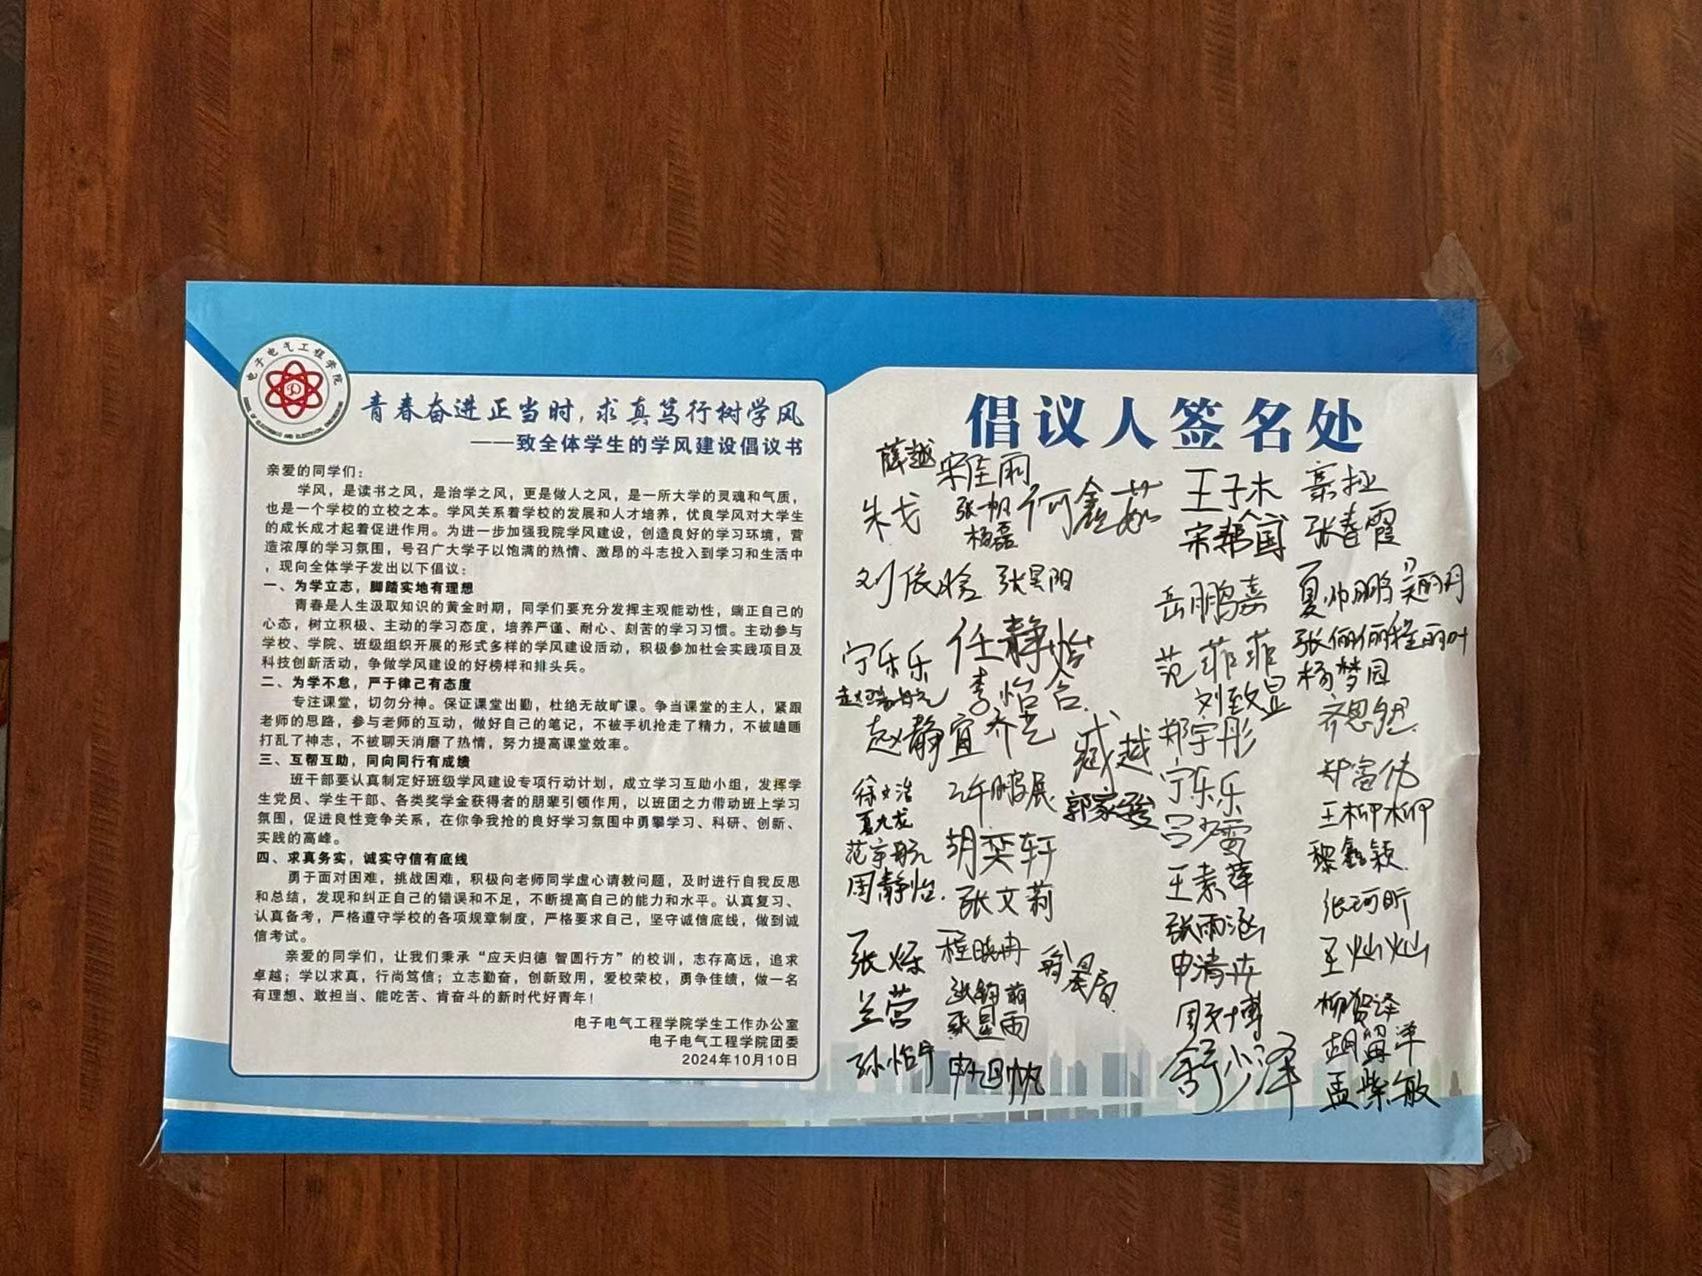 电子电气工程学院
青春奋进正当时，求真笃行树学风
——致全体学生的学风建设倡议书
亲爱的同学们：
学风，是读书之风，是治学之风，更是做人之风，是一所大学的灵魂和气质，
也是一个学校的立校之本。学风关系着学校的发展和人才培养，优良学风对大学生
的成长成才起着促进作用。为进一步加强我院学风建设，创造良好的学习环境，营
造浓厚的学习氛围，号召广大学子以饱满的热情、激昂的斗志投入到学习和生活中
，现向全体学子发出以下倡议：
一、为学立志，脚踏实地有理想
青春是人生汲取知识的黄金时期，同学们要充分发挥主观能动性，端正自己的
心态，树立积极、主动的学习态度，培养严谨、耐心、刻苦的学习习惯。主动参与
学校、学院、班级组织开展的形式多样的学风建设活动，积极参加社会实践项目及
科技创新活动，争做学风建设的好榜样和排头兵。
二、为学不怠，严于律己有态度
专注课堂，切勿分神。保证课堂出勤，杜绝无故旷课。争当课堂的主人，紧跟
老师的思路，参与老师的互动，做好自己的笔记，不被手机抢走了精力，不被瞌睡
打乱了神志，不被聊天消磨了热情，努力提高课堂效率。
三、互帮互助，同向同行有成绩
班干部要认真制定好班级学风建设专项行动计划，成立学习互助小组，发挥学
生党员、学生干部、各类奖学金获得者的朋辈引领作用，以班团之力带动班上学习
氛围，促进良性竞争关系，在你争我抢的良好学习氛围中勇攀学习、科研、创新、
实践的高峰。
四、求真务实，诚实守信有底线
勇于面对困难，挑战困难，积极向老师同学虚心请教问题，及时进行自我反思
和总结，发现和纠正自己的错误和不足，不断提高自己的能力和水平。认真复习、
认真备考，严格遵守学校的各项规章制度，严格要求自己，坚守诚信底线，做到诚
信考试。
亲爱的同学们，让我们秉承“应天归德 智圆行方”的校训，志存高远，追求
卓越；学以求真，行尚笃信；立志勤奋，创新致用，爱校荣校，勇争佳绩，做一名
有理想、敢担当、能吃苦、肯奋斗的新时代好青年！
电子电气工程学院学生工作办公室
电子电气工程学院团委
2024年10月10日
倡议人签名处
薛越
宋佳雨
朱戈
张一帆
杨磊
何鑫茹
刘依晗
张昊阳
宁乐乐
任静怡
李怡含
赵静宜
乔艺
臧越
徐文浩
夏九龙
郭家骏
范宗航
周静怡
胡奕轩
张文莉
张烁
程映冉
兰营
张昱雨
孙怡宁
王子木
张春霞
岳鹏嘉
夏帅鹏
吴雨丹
范菲菲
张俪俪
程雨叶
刘致显
杨梦园
郑宇彤
齐思然
宁乐乐
郑富伟
吕少雷
王柳柳
王素萍
黎鑫颖
张雨涵
张珂昕
申清卉
王灿灿
柳贺泽
舒少泽
胡留洋
孟紫敏